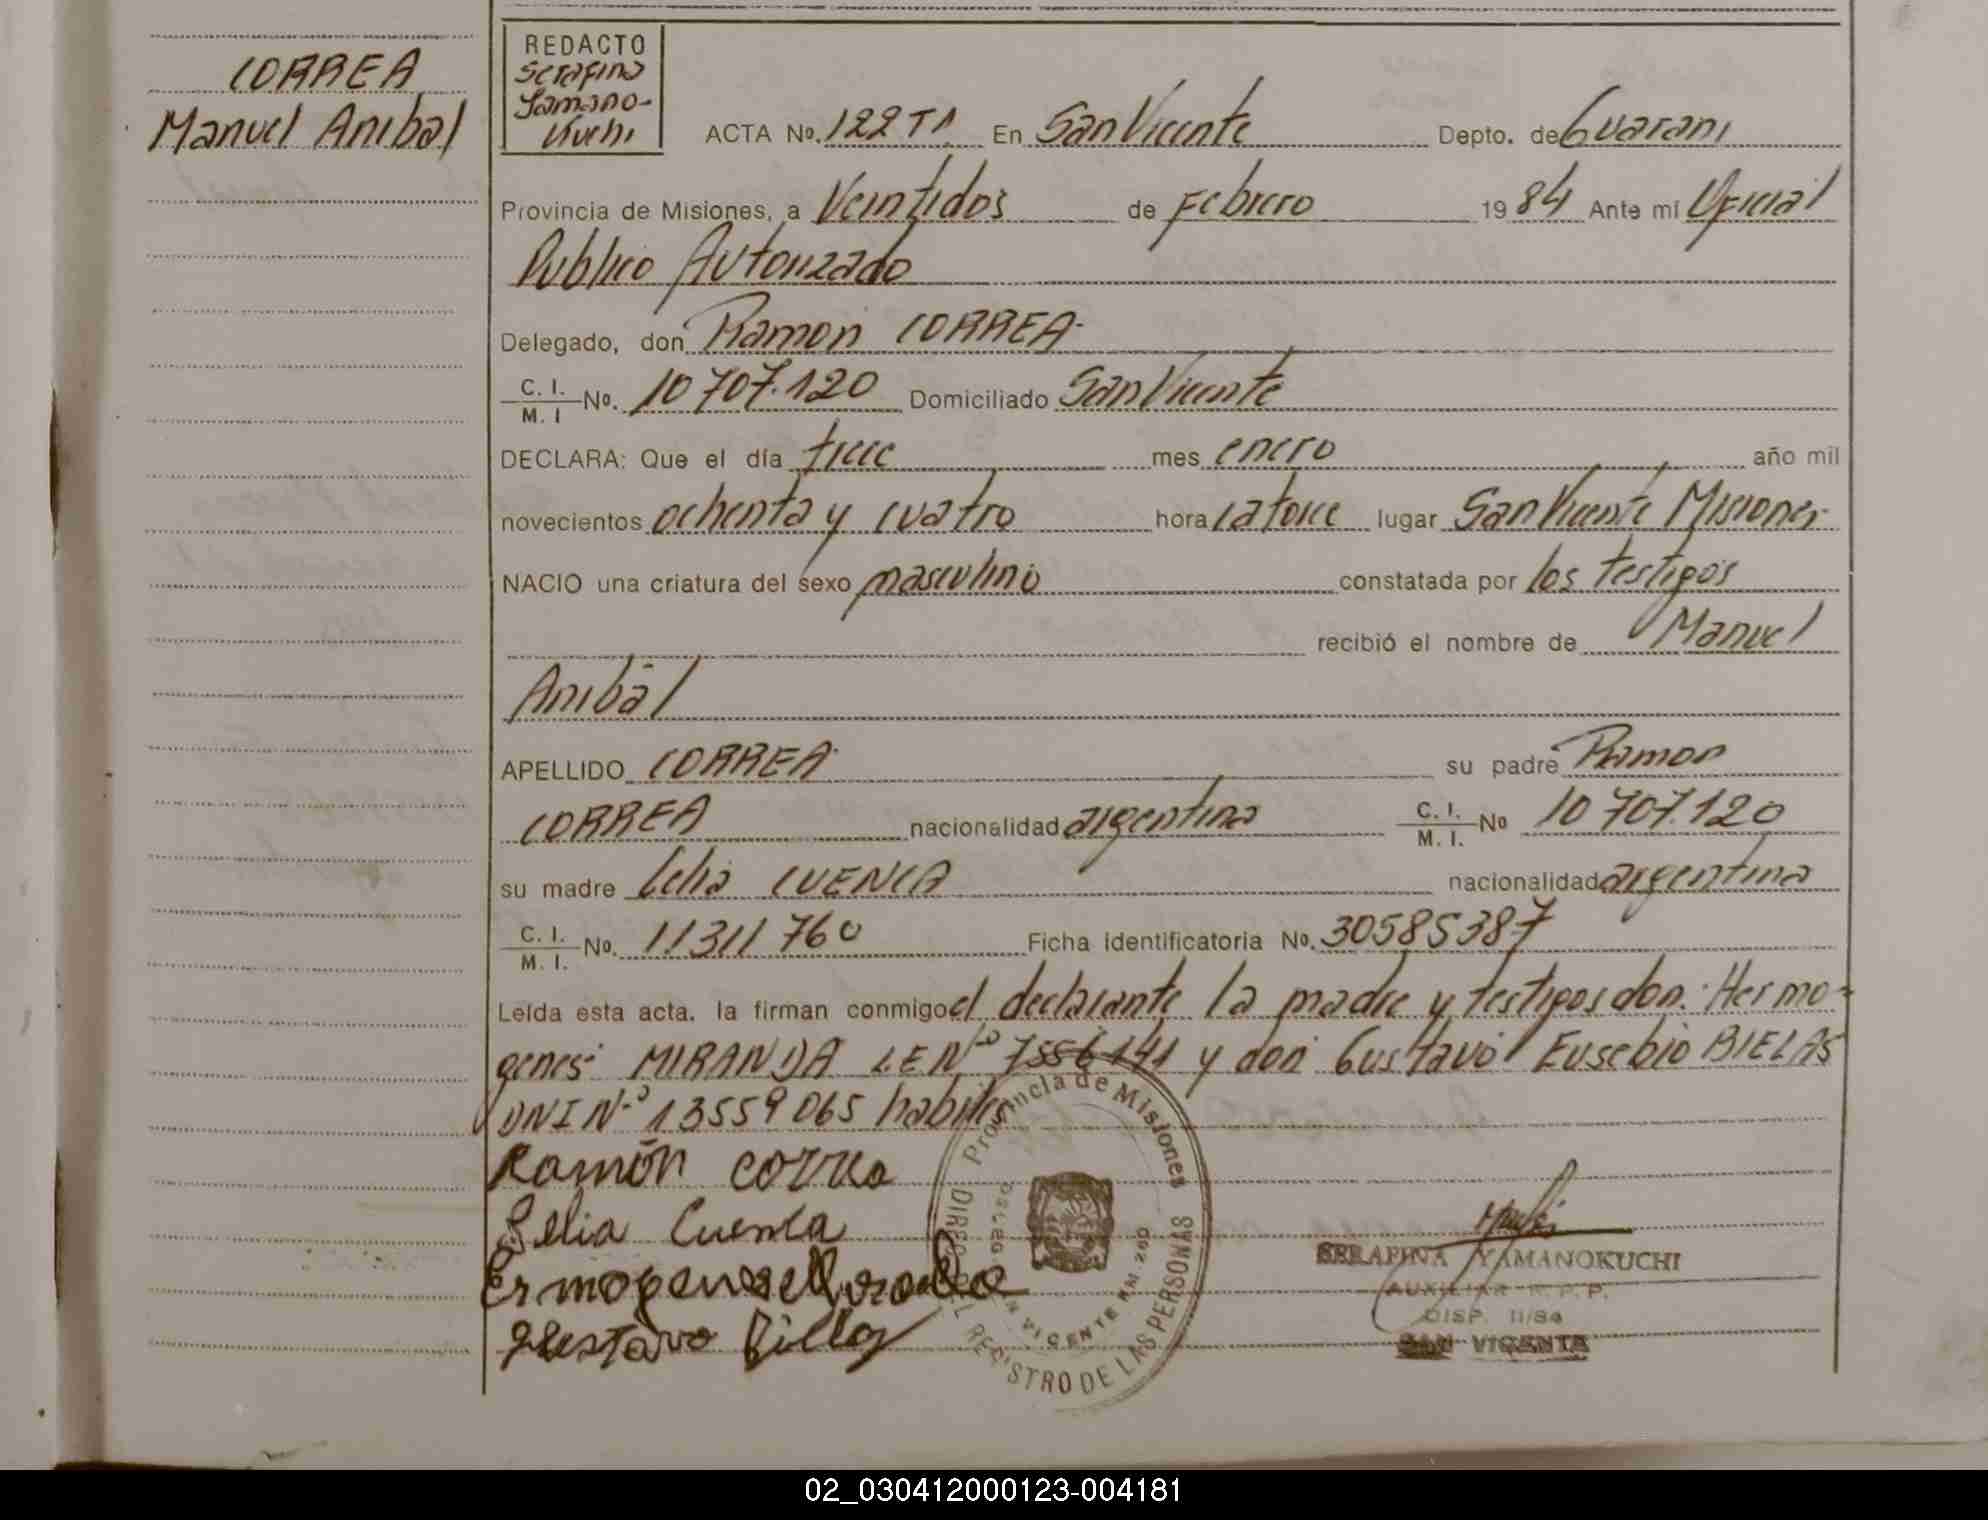 CORREA
Manuel Anibal
REDACTO
Serafina
Yamano-
Kuchi
ACTA No. 122 T1 En San Vicente Depto. de Guarani
Provincia de Misiones, a Veintidos de Febrero 1984 Ante mi Oficial
Publico Autorizado
Delegado, don Ramon CORREA
C. I. / M. I No. 10 707.120 Domiciliado San Vicente
DECLARA: Que el día trece mes enero año mil
novecientos ochenta y cuatro hora catorce lugar San Vicente Misiones
NACIO una criatura del sexo masculino constatada por los testigos
recibió el nombre de Manuel
Anibal
APELLIDO CORREA su padre Ramon
CORREA nacionalidad argentina C. I. / M. I. No 10 707.120
su madre Celia CUENCA nacionalidad argentina
C. I. / M. I. No. 11311 760 Ficha identificatoria No. 30585387
Leída esta acta, la firman conmigo el declarante la madre y testigos don: Hermo-
genes MIRANDA L E Nº 7556141 y don Gustavo Eusebio BIELAS
DNI Nº 13559065 habiles
Ramón Correa
Selia Cuenca
Gustavo
Provincia de Misiones
REGISTRO DE LAS PERSONAS
SERAFINA YAMANOKUCHI
AUXILIAR R. P. P.
DISP. 11/84
SAN VICENTE
02_030412000123-004181